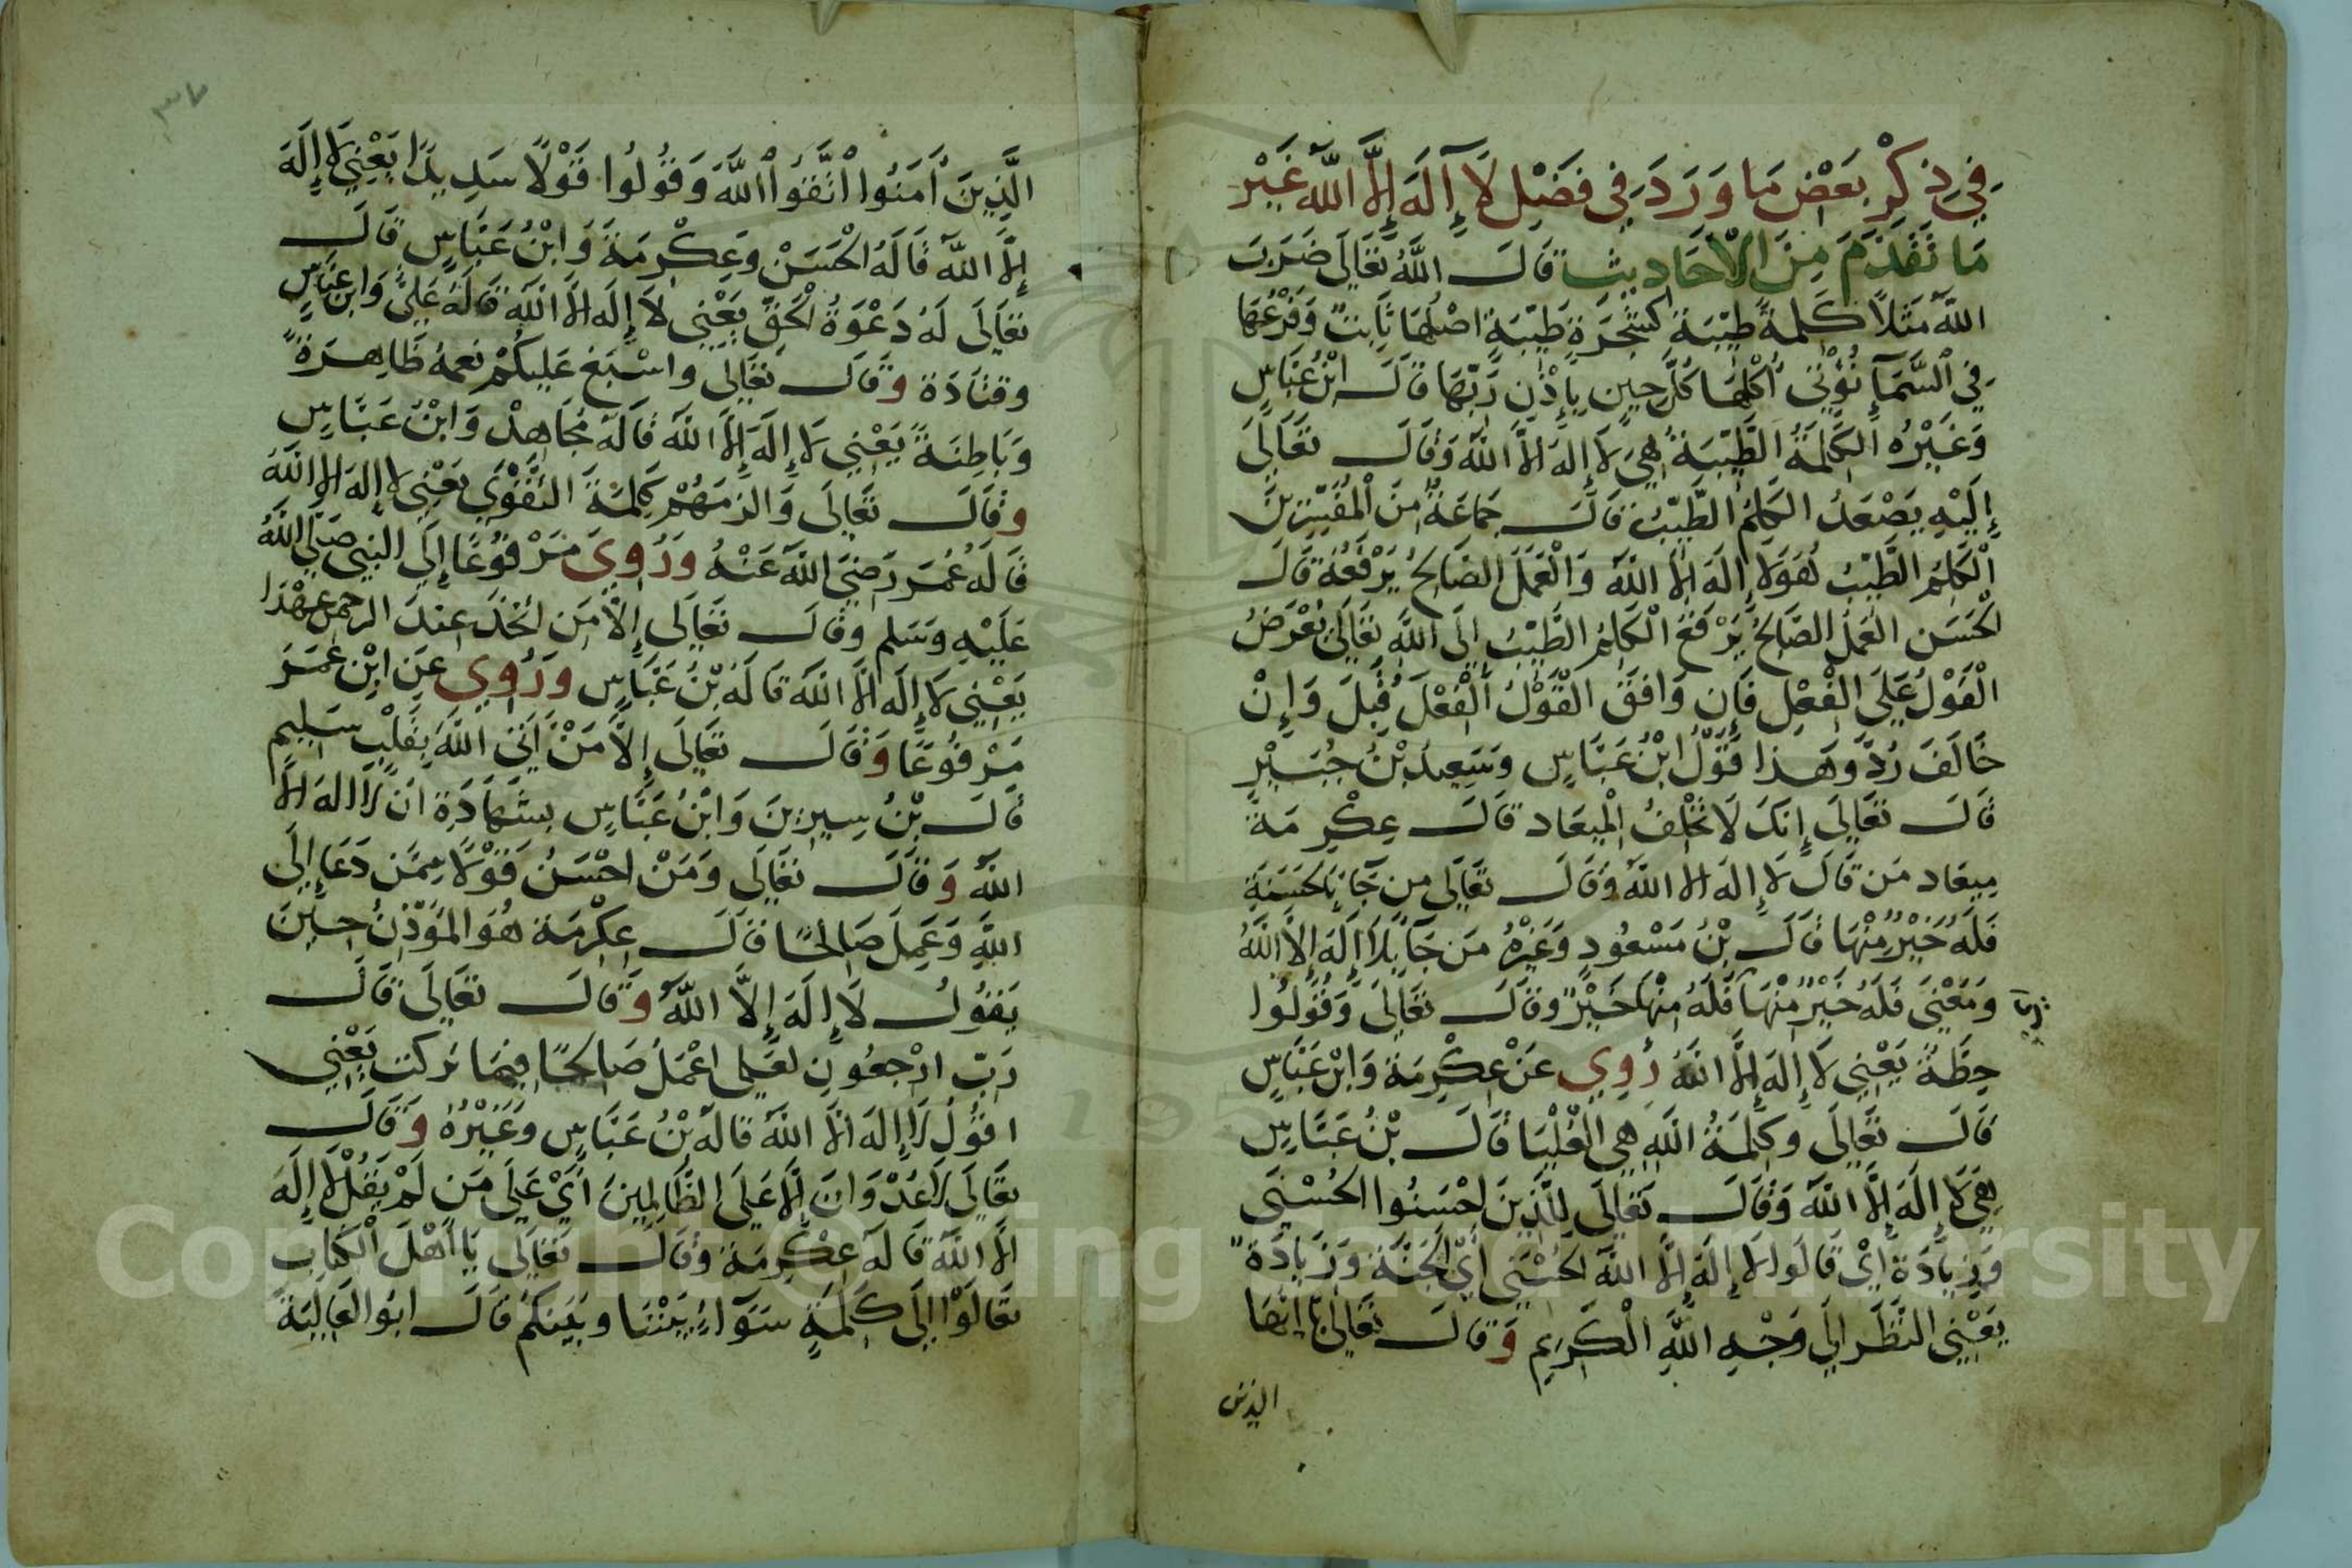 في ذِكْرِ بَعْضِ مَا وَرَدَ فِي فَضْلِ لَا إِلَهَ إِلَّا اللَّه غَيْر
مَا تَقَدَّمَ مِنَ الأَحَادِيث قَالَ اللَّهُ تَعَالَى ضَرَبَ
اللَّه مَثَلًا كَلِمَةً طَيِّبَةً كَشَجَرَةٍ طَيِّبَةٍ اصْلُهَا ثَابِتٌ وَفَرْعُهَا
فِي السَّمَآءِ تُؤْتِي أُكُلَهَا كُلَّ حِينٍ بِإِذْنِ رَبِّهَا قَالَ ابْنُ عَبَّاسٍ
وَغَيْرُه الكَلِمَةُ الطَّيِّبَةُ هِيَ لَا إِلَهَ الَّا اللَّه وَقَالَ تَعَالَى
إِلَيْهِ يَصْعَدُ الكَلِمُ الطَّيِّبُ قَالَ جَمَاعَةٌ مِنَ الْمُفَسِّرِينَ
الْكَلِمُ الطَّيِّبُ هُوَ لَا إِلَهَ الَّا اللَّه وَالْعَمَلُ الصَّالِحُ يَرْفَعُهُ قَالَ
الْحَسَن العَمَلُ الصَّالِحُ يَرْفَعُ الْكَلِمَ الطَّيِّبَ إِلَى اللَّهِ تَعَالَى يُعْرَضُ
الْقَوْلُ عَلَى الْفِعْلِ فَإِن وَافَقَ الْقَوْلُ الْفِعْلَ قُبِلَ وَإِنْ
خَالَفَ رُدَّ وَهَذَا قَوْلُ ابْنُ عَبَّاسٍ وَسَعِيدُ بْنُ جُبَيْرٍ
قَالَ تَعَالَى إِنَكَ لَا تُخْلِفُ الْمِيعَاد قَالَ عِكْرِمَةُ
مِيعَاد مَن قَالَ لَا إِلَهَ الَّا اللَّهُ وَقَالَ تَعَالَى مِن جَآءَ بِالحَسَنَةِ
فَلَهُ خَيْرٌ مِنْهَا قَالَ بْنُ مَسْعُودٍ وَغَيْرُهُ مَن جَآءَ بِلَا إِلَهَ إِلَّا اللَّهُ
وَمَعْنَى فَلَهُ خَيْرٌ مِنْهَا فَلَهُ مِنْهَا خَيْرٌ وَقَالَ تَعَالَى وَقُولُوا
حِطَّةٌ يَعْنِي لَا إِلَهَ إِلَّا اللَّهُ رُوِيَ عَنْ عِكْرِمَةَ وَابْنُ عَبَّاسٍ
قَالَ تَعَالَى وَكَلِمَةُ اللَّهِ هِيَ الْعُلْيَا قَالَ بْنُ عَبَّاسٍ
هِيَ لَا إِلَهَ إِلَّا اللَّه وَقَالَ تَعَالَى لِلَّذِينَ احْسَنُوا الحُسْنَى
وَزِيَادَة أَيْ قَالُوا لَا إِلَهَ إِلَّا اللَّه الحُسْنَى أَيْ الْجَنَّة وَزِيَادَةٌ
يَعْنِي النَّظَرَ إِلَى وَجْهِ اللَّهِ الْكَرِيمِ وَقَالَ تَعَالَى يَا ايُّهَا
الذين
٣٧
الَّذِينَ آمَنُوا اتَّقُوا اللَّهَ وَقُولُوا قَوْلًا سَدِيدًا يَعْنِي لَا إِلَهَ
إِلَّا اللَّه قَالَهُ الْحَسَنْ وَعِكْرِمَةَ وَابْنُ عَبَّاسٍ قَالَ
تَعَالَى لَهُ دَعْوَةُ الْحَقِّ يَعْنِي لَا إِلَهَ الَّا اللَّه قَالَهُ عَلِيٌّ وَابن عَبَّاسٍ
وقتَادَة وقَالَ تَعَالَى واسْبَغَ عَلَيكُمْ نِعَمَهُ ظَاهِرَةً
وَبَاطِنَةً يَعْنِي لَا إِلَهَ إِلَّا اللَّه قَالَهُ مُجَاهِدْ وَابْنُ عَبَّاسٍ
وقَالَ تَعَالَى وَالزَمَهُمْ كَلِمَةَ التَّقْوَى يَعْنِي لا إله الا اللَّهُ
قَالَهُ عُمَرَ رَضِيَ اللَّه عَنْهُ وَرُوِيَ مَرْفُوعًا إِلَى النَّبِي صَلَّى اللَّهُ
عَلَيْهِ وَسَلَم وَقَالَ تَعَالَى إِلَّا مَن اتَّخَذَ عِنْدَ الرحمن عَهْدًا
يَعْنِي لَا إِلَهَ الَّا اللَّه قَالَهُ بْنُ عَبَّاسٍ وَرُوِيَ عَن ابْنِ عُمَرَ
مَرْفُوعًا وَقَالَ تَعَالَى إِلَّا مَنْ أَتَى اللَّهَ بِقَلْبٍ سَلِيمٍ
قَالَ بْنُ سِيرِينَ وَابْنُ عَبَّاسٍ بِشَهَادَةِ ان لَا اله الَّا
اللَّه وَقَالَ تَعَالَى وَمَنْ احْسَنُ قَوْلًا مِمَّن دَعَا إِلَى
اللَّهِ وَعَمِلَ صَالِحًا قَالَ عِكْرِمَة هُوَ المُؤَذِّنُ حِينَ
يَقُولُ لَا إِلَهَ إِلَّا اللَّهُ وَقَالَ تَعَالَى قَالَ
رَبِّ ارْجِعُونِ لَعَلِّى اعْمَلُ صَالِحًا فِيمَا تَركت يَعْنِي
اقُولُ لَا إِلَهَ الَّا اللَّه قَالَهُ بْنُ عَبَّاسٍ وَغَيْرُهُ وَقَالَ
تَعَالَى لَا عُدْوَانَ إِلَّا عَلَى الظَّالِمِينَ أَيْ عَلَى مَن لَمْ يَقُلْ لَا إِلَهَ
الَّا اللَّه قَالَهُ عِكْرِمَة وَقَالَ تَعَالَى يَا أَهْلَ الْكِتَابِ
تَعَالَوْا إِلَى كَلِمَةٍ سَوَآءٍ بَيْنَنَا وبَيْنَكُمْ قَالَ ابُو العَالِيَةِ
Copyright © King Saud University
195